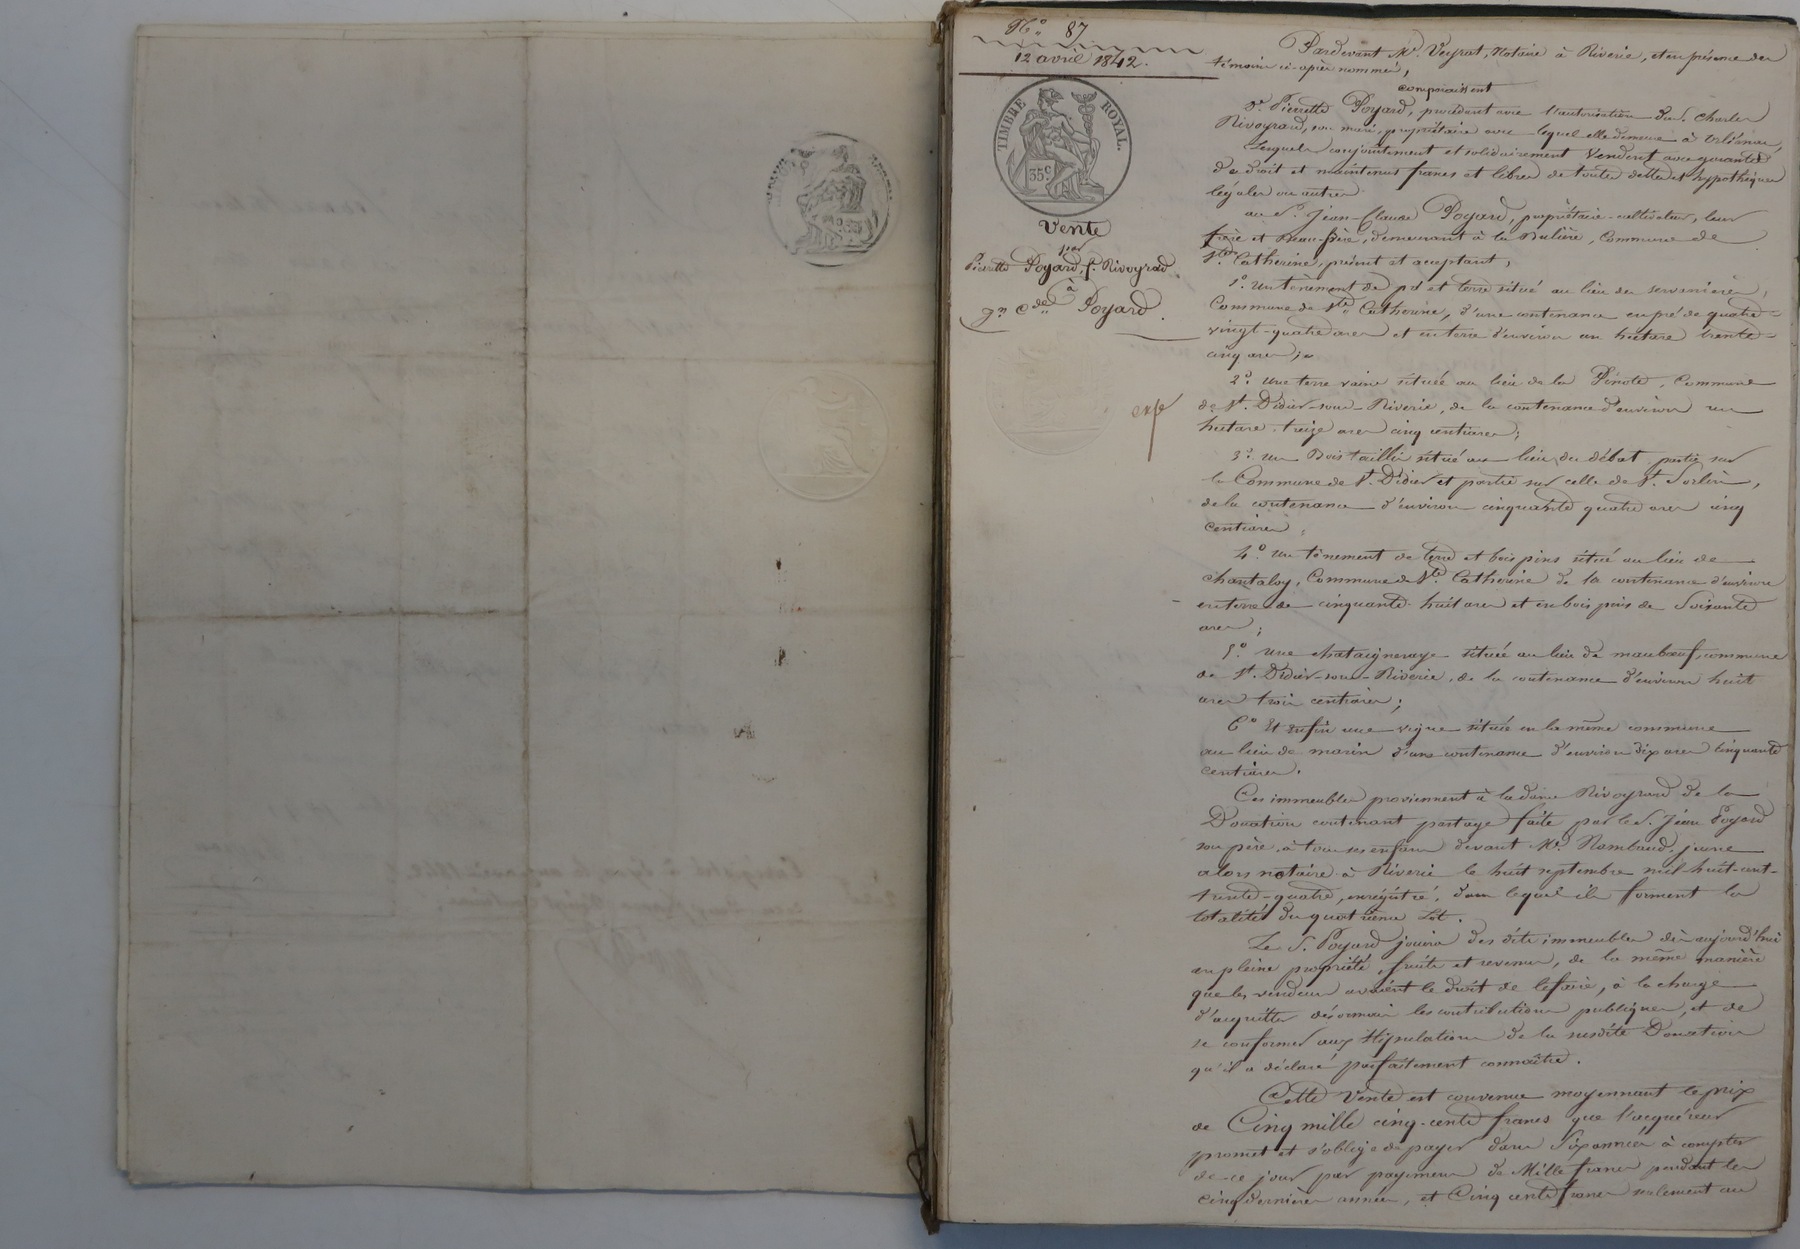 N.° 87
12 avril 1842.
TIMBRE ROYAL.
35c.
Vente
par
Pierrette Poyard, f.e Rivoyrard
à
Jn Cde Poyard.
exp
Pardevant Me. Veyrat, Notaire à Riverie, et en présence des
témoins ci-après nommés,
comparaissent
De Pierrette Poyard, procédant avec l'autorisation du s. Charles
Rivoyrard, son mari, propriétaire avec lequel elle demeure à
Lesquels conjointement et solidairement Vendent avec garantie
de droit et maintenus francs et libres de toutes dettes et hypothèques
légales ou autres
au S.r Jean-Claude Poyard, propriétaire-cultivateur, leur
frère et Beau-frère, demeurant à la Commune de
Ste. Catherine, présent et acceptant,
1.° Un tènement de pré et terre situé au lieu des
Commune de Ste. Catherine, d'une contenance en pré de quatre-
vingt-quatre ares et en terre d'environ un hectare trente-
cinq ares;
2.° Une terre vaine située au lieu de la Commune
de St. Didier-sous-Riverie, de la contenance d'environ un
hectare treize ares cinq centiares;
3.° Un Bois taillis situé au lieu du débat partie sur
la Commune de St. Didier et partie sur celle de St. Sorlin,
de la contenance d'environ cinquante quatre ares cinq
centiares;
4.° Un tènement de terre et bois pins situé au lieu de
chantaloy, Commune de Ste. Catherine de la contenance d'environ
en terre de cinquante-huit ares et en bois pins de Soixante
ares;
5.° Une chataigneraye située au lieu de maubœuf, commune
de St. Didier-sous-Riverie, de la contenance d'environ huit
ares trois centiares;
6.° Et enfin une vigne située en la même commune
au lieu de marin d'une contenance d'environ dix ares cinquante
centiares.
Ces immeubles proviennent à la dame Rivoyrard de la
Donation contenant partage faite par le S. Jean Poyard
son père, à tous ses enfans devant Me. Rambaud, jeune
alors notaire à Riverie le huit septembre mil huit-cent-
trente-quatre, enrégistré, dans lequel ils forment la
totalité du quatrième Lot.
Le S. Poyard jouira des dits immeubles dès aujourd'hui
en pleine propriété, fruits et revenus, de la même manière
que les vendeurs avaient le droit de le faire, à la charge
d'acquitter désormais les contributions publiques, et de
se conformer aux stipulations de la susdite Donation
qu'il a déclaré parfaitement connaître.
Cette Vente est convenue moyennant le prix
de Cinq mille cinq-cents francs que l'acquéreur
promet et s'oblige de payer dans Six années à compter
de ce jour par payemens de Mille francs pendant les
cinq dernières années, et Cinq cents francs seulement au